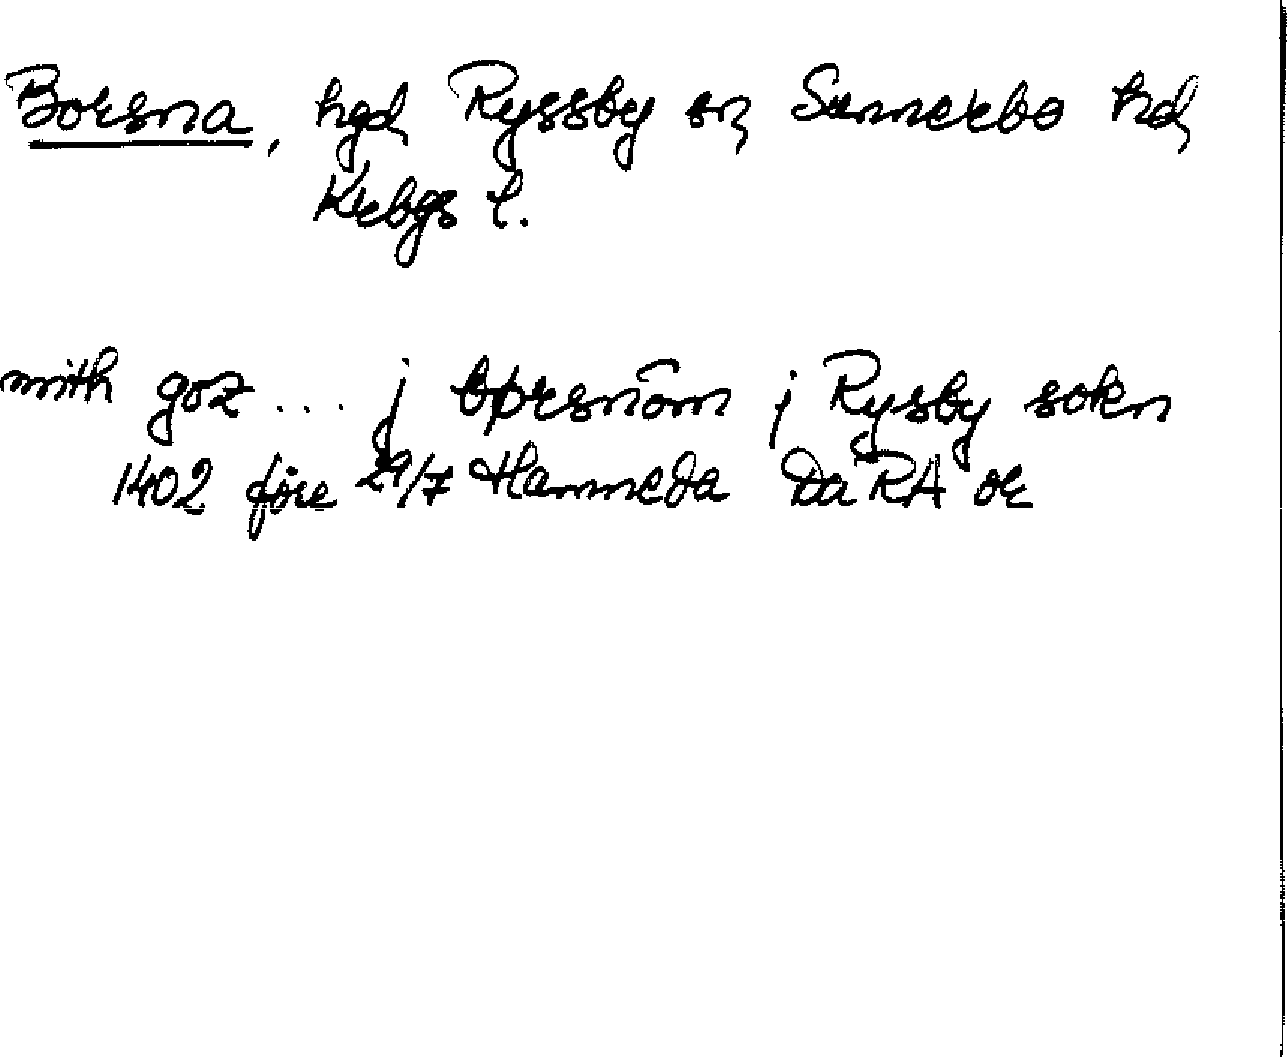 Borsna, hgd Ryssby sn Sunnerbo hd
Krbgs l.
mith goz ... j børsnom j Rysby sokn
1402 före 29/7 Hammeda Da RA or